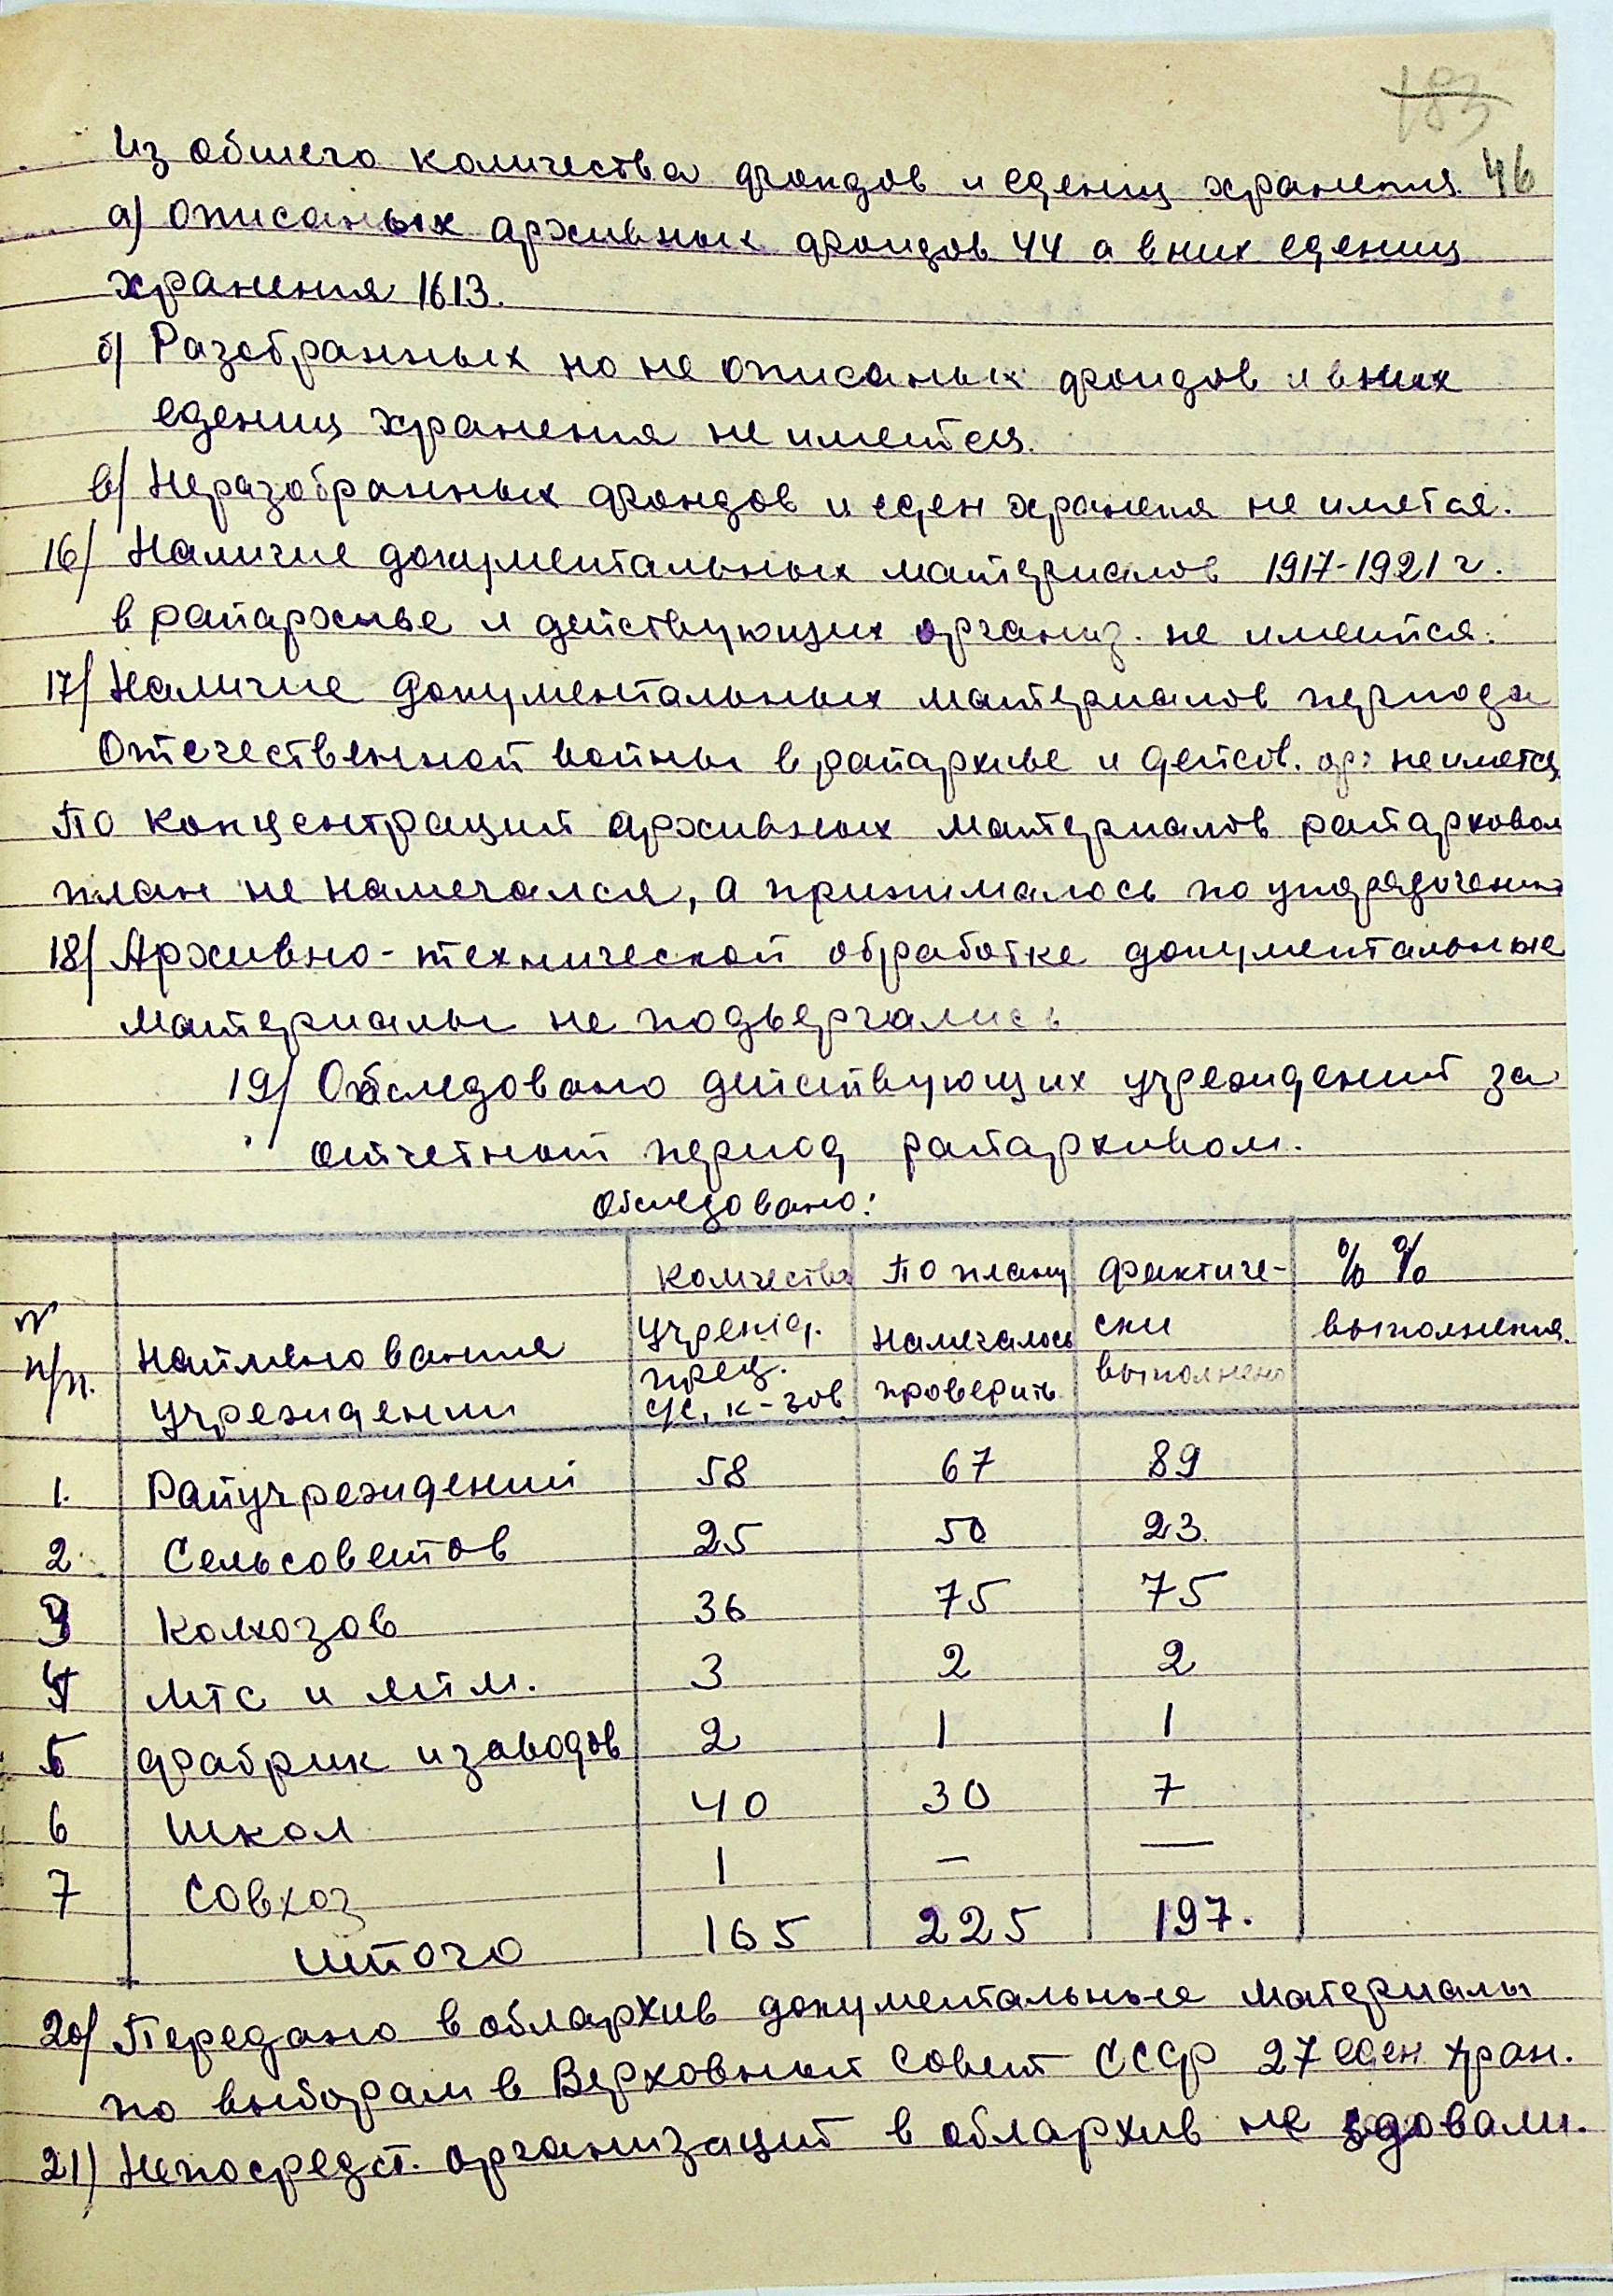 183
46
Из общего количества фондов и едениц хранения
а) описаных архивных фондов 44 а в них едениц
хранения 1613.
б) Разобранных но не описаных фондов и в них
едениц хранения не имеется.
в) Неразобранных фондов и еден хранения не имется.
16) Наличие документальных материалов 1917-1921 г.
в райархиве и действующих организ. не имеится.
17) Наличие документальных материалов периода
Отечественной войны в райархиве и дейсв. ор: не имется
По концентраций архивных материалов райархивом
план не намечался, а принималось по упорядочению
18) Архивно-технической обработке документальные
материалы не подвергались
19) Обследовано действующих учреждений за
отчетный период райархивом.
Обследовано:
№ п/п. | Наименование учреждении | Количества учрежд. пред. с/с, к-зов | По плану намечалось проверить | Фактиче- ски выполнено | % % выполнения.
1. Райучреждений 58 67 89
2. Сельсоветов 25 50 23.
3 Колхозов 36 75 75
4 МТС и ЛМ. 3 2 2
5 фабрик и заводов 2 1 1
6 Школ 40 30 7
7 Совхоз 1 – —
Итого 165 225 197.
20) Передано в облархив документальные материалы
по выборам в Верховный Совет СССР 27 еден хран.
21) Непосредст. организаций в облархив не здовали.